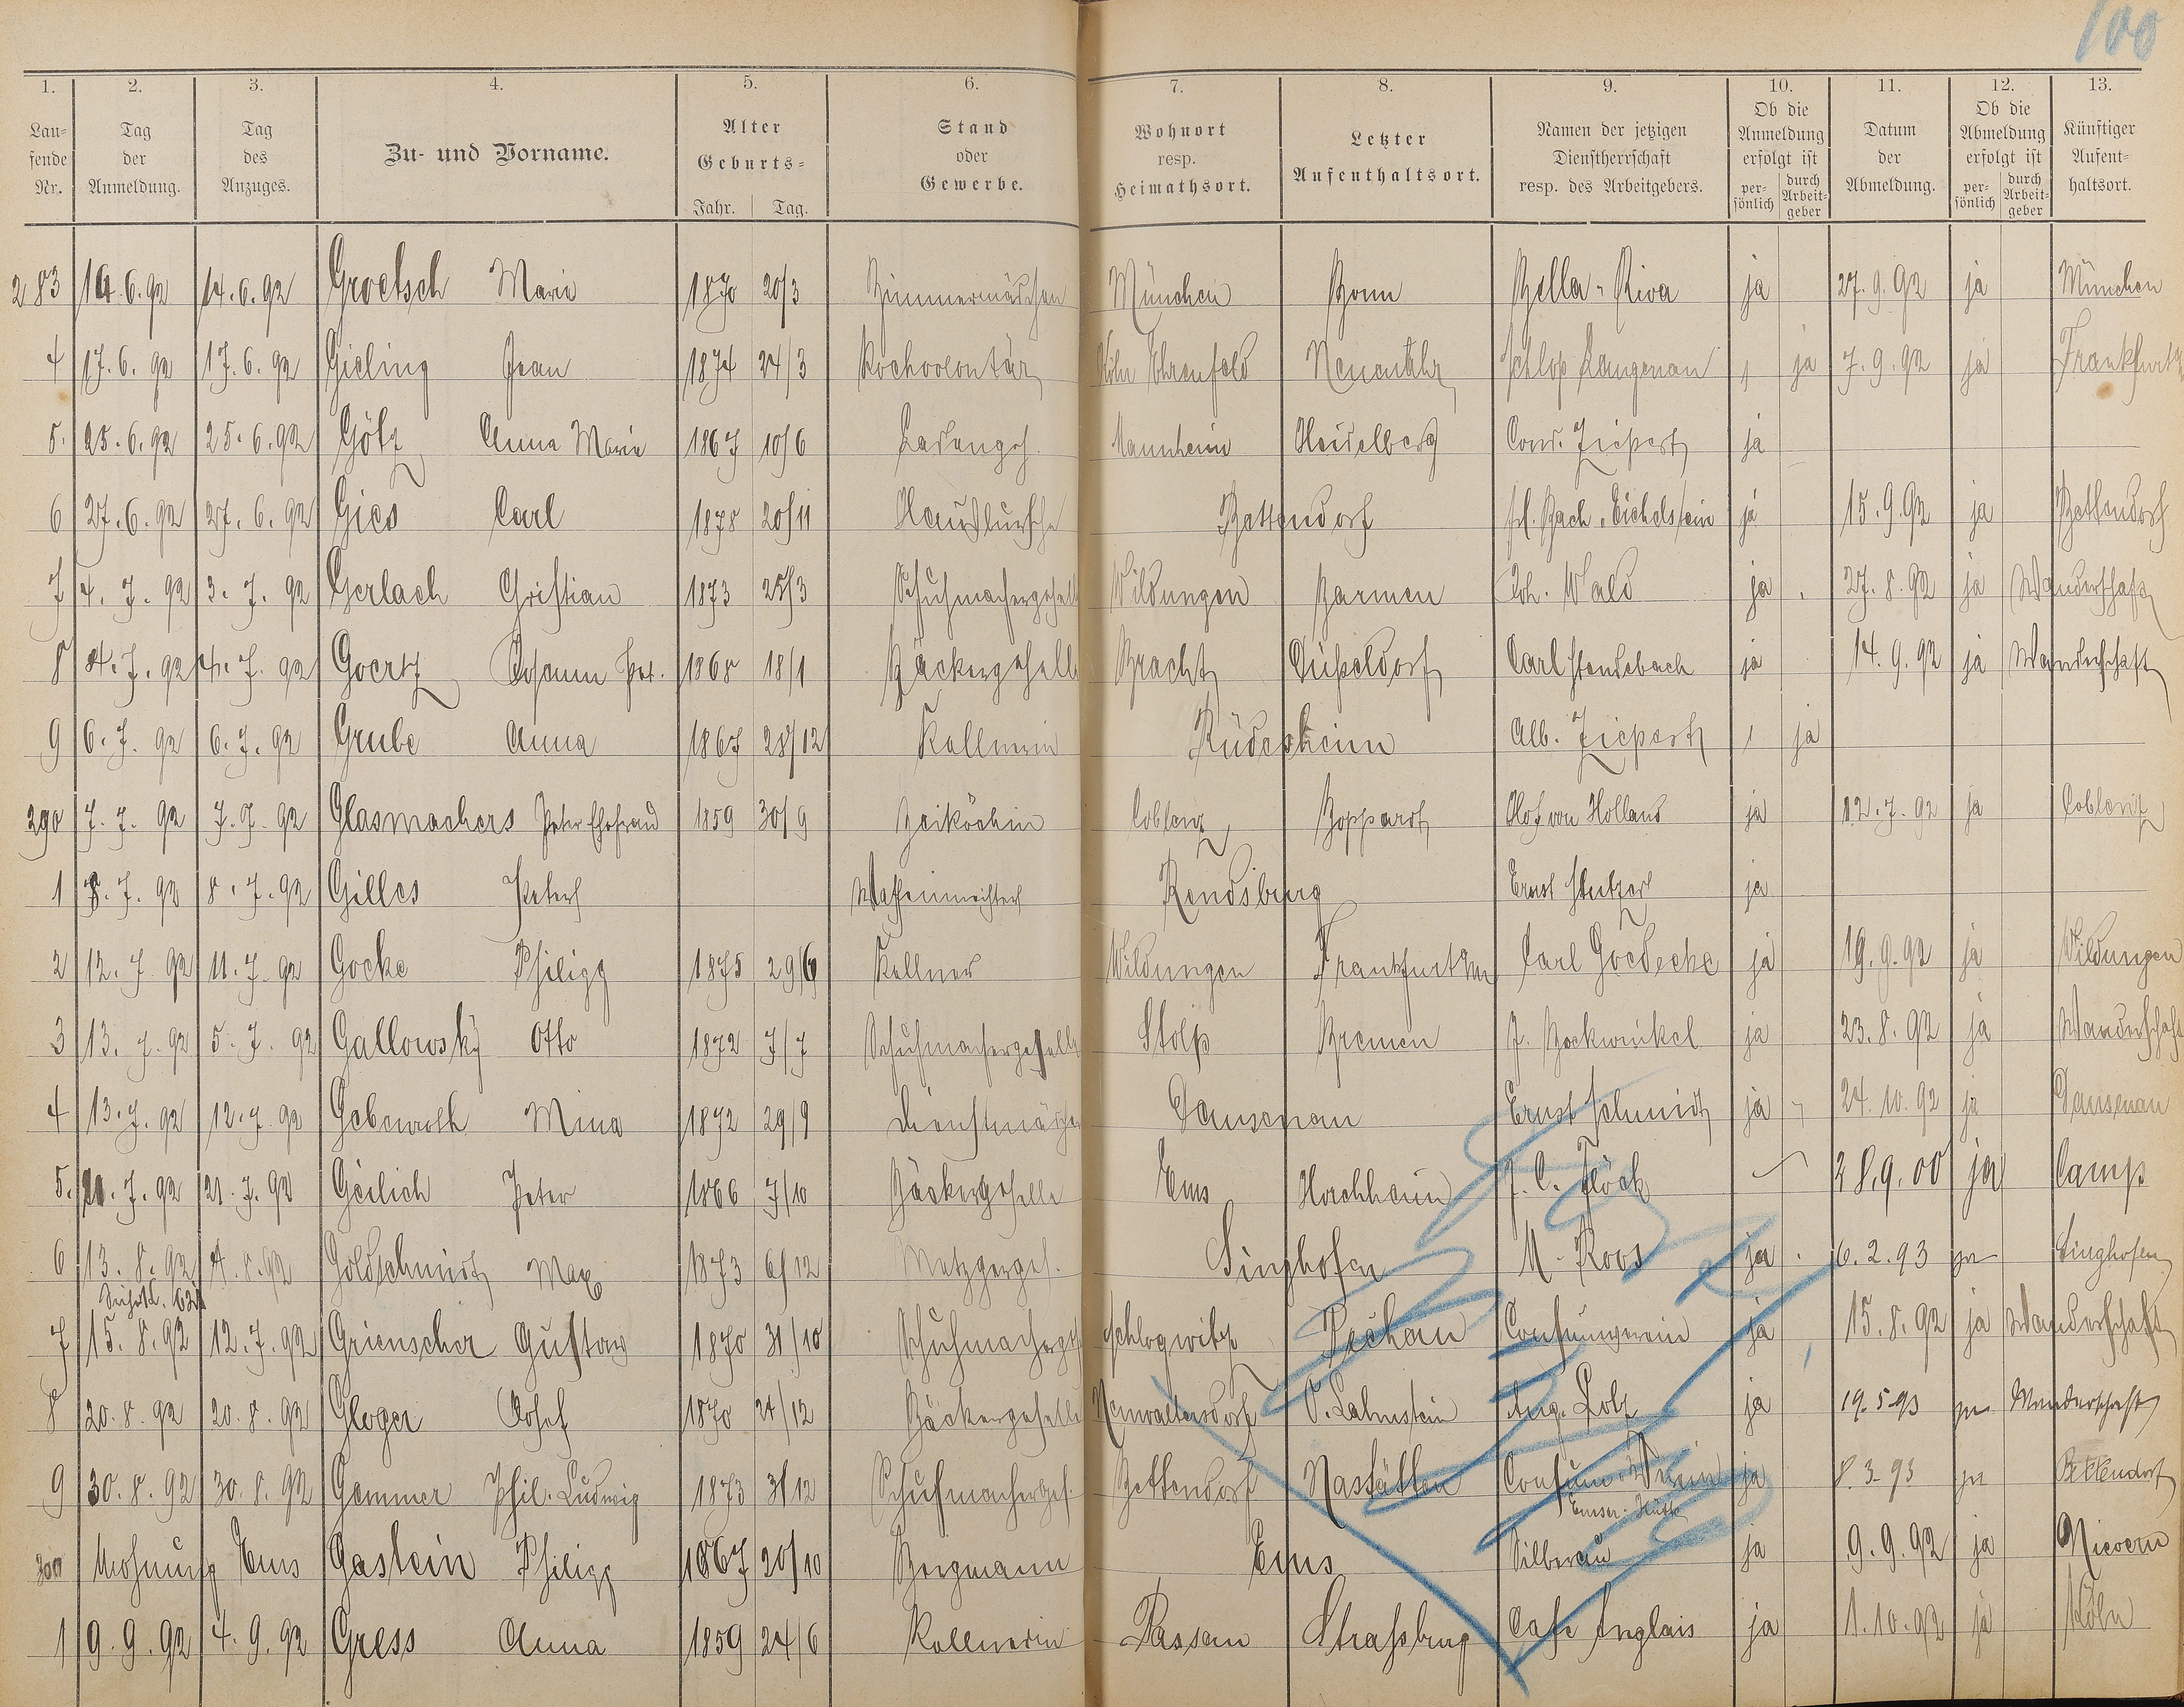 100
1. 2. 3. 4. 5. 6. 7. 8. 9. 10. 11. 12. 13.
Lau-
fende
Nr.
Tag
der
Anmeldung.
Tag
des
Anzuges.
Zu- und Vorname.
Alter
Geburts-
Jahr. Tag.
Stand
oder
Gewerbe.
Wohnort
resp.
Heimathsort.
Letzter
Aufenthaltsort.
Namen der jetzigen
Dienstherrschaft
resp. des Arbeitgebers.
Ob die
Anmeldung
erfolgt ist
per-
sönlich
durch
Arbeit-
geber
Datum
der
Abmeldung.
Ob die
Abmeldung
erfolgt ist
per-
sönlich
durch
Arbeit-
geber
Künftiger
Aufent-
haltsort.
283 14.6.92 14.6.92 Groetsch Marie 1870 20/3 Zimmermädchen München Bonn Bella-Riva ja 27.9.92 ja München
4 17.6.92 17.6.92 Gieling Jean 1874 24/3 Kochvolontär Köln Ehrenfeld Neuenahr Schloß Langenau ja 7.9.92 ja Frankfurt
5. 25.6.92 25.6.92 Götz Anna Marie 1867 10/6 Ladengeh. Mannheim Heidelberg Conr. Ziepert ja
6 27.6.92 27.6.92 Gies Carl 1878 20/11 Hausbursche Bettendorf Bach, Eichelstein ja 15.9.92 ja Bettendorf
7 4.7.92 3.7.92 Gerlach Christian 1873 25/3 Schuhmachergeselle Wildungen Barmen Joh. Wald ja 27.8.92 ja Wanderschaft
8 4.7.92 4.7.92 Goertz Johann 1868 18/1 Bäckergeselle Bracht Düsseldorf Carl ja 14.9.92 ja Wanderschaft
9 6.7.92 6.7.92 Grube Anna 1867 28/12 Kellnerin Rüdesheim Alb. Ziepert ja
290 7.7.92 7.7.92 Glasmachers Peter Ehefrau 1859 30/9 Beiköchin Coblenz Boppard Hof von Holland ja 12.7.92 ja Coblenz
1 8.7.92 8.7.92 Gilles Peter Rendsburg Ernst Stutzer ja
2 12.7.92 11.7.92 Gocke Philipp 1875 29/6 Kellner Wildungen Frankfurt a/M Carl Goedecke ja 19.9.92 ja Wildungen
3 13.7.92 5.7.92 Gallowsky Otto 1872 7/7 Schuhmachergeselle Stolp Bremen J. Bockwinkel ja 23.8.92 ja Wanderschaft
4 13.7.92 12.7.92 Gebenroth Mina 1872 29/9 Dienstmädchen Dausenau Ernst Schmidt ja 24.10.92 ja Dausenau
5. 21.7.92 21.7.92 Geilich Peter 1866 7/10 Bäckergeselle Ems Horchheim J. C. Flöck 28.9.00 ja Camp
6 13.8.92 4.8.92 Goldschmidt Max 1873 6/12 Metzgerges. Singhofen M. Roos ja 6.2.93 ja Singhofen
7 15.8.92 12.7.92 Grienscher Gustav 1870 31/10 Schuhmacherges. Schlogwitz Consumverein ja 15.8.92 ja Wanderschaft
8 20.8.92 20.8.92 Gloger Josef 1870 24/12 Bäckergeselle Neuwaltersdorf O. Lahnstein Aug. Lotz ja 19.5.93 ja Wanderschaft
9 30.8.92 30.8.92 Gemmer Phil. Ludwig 1873 3/12 Schuhmacherges. Bettendorf Nastätten Consum Verein ja 8.3.93 ja Bettendorf
Emser-Hütte
300 Wohnung Ems Gastein Philipp 1867 20/10 Bergmann Ems Silberau ja 9.9.92 ja Nievern
1 9.9.92 4.9.92 Gress Anna 1859 24/6 Kellnerin Passau Strassburg Cafe Anglais ja 1.10.92 ja Köln